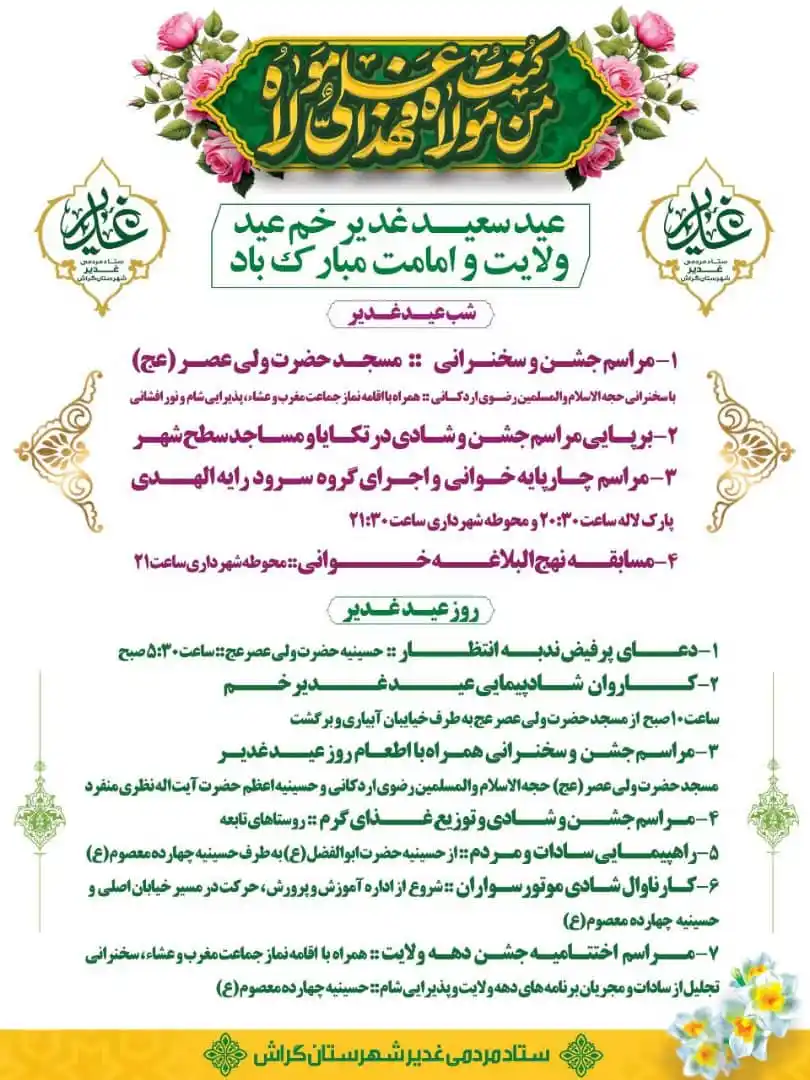 من كنت مولاه فهذا علی مولاه
غدیر
ستاد مردمی
غدیر
شهرستان گراش
غدیر
ستاد مردمی
غدیر
شهرستان گراش
عید سعید غدیر خم عید
ولایت و امامت مبارک باد
شب عید غدیر
۱-مراسم جشن و سخنرانی :: مسجد حضرت ولی عصر (عج)
با سخنرانی حجه الاسلام والمسلمین رضوی اردکانی :: همراه با اقامه نماز جماعت مغرب و عشاء، پذیرایی شام و نورافشانی
۲-برپایی مراسم جشن و شادی در تکایا و مساجد سطح شهر
۳-مراسم چارپایه خوانی و اجرای گروه سرود رایه الهدی
پارک لاله ساعت ۲۰:۳۰ و محوطه شهرداری ساعت ۲۱:۳۰
۴-مسابقه نهج البلاغه خوانی:: محوطه شهرداری ساعت ۲۱
روز عید غدیر
۱-دعای پرفیض ندبه انتظار :: حسینیه حضرت ولی عصر عج:: ساعت ۵:۳۰ صبح
۲-کاروان شادپیمایی عید غدیر خم
ساعت ۱۰ صبح از مسجد حضرت ولی عصر عج به طرف خیابان آبیاری و برگشت
۳-مراسم جشن و سخنرانی همراه با اطعام روز عید غدیر
مسجد حضرت ولی عصر (عج) حجه الاسلام والمسلمین رضوی اردکانی و حسینیه اعظم حضرت آیت اله نظری منفرد
۴-مراسم جشن و شادی و توزیع غذای گرم :: روستاهای تابعه
۵-راهپیمایی سادات و مردم:: از حسینیه حضرت ابوالفضل (ع) به طرف حسینیه چهارده معصوم (ع)
۶-کارناوال شادی موتورسواران :: شروع از اداره آموزش و پرورش، حرکت در مسیر خیابان اصلی و
حسینیه چهارده معصوم (ع)
۷-مراسم اختتامیه جشن دهه ولایت :: همراه با اقامه نماز جماعت مغرب و عشاء، سخنرانی
تجلیل از سادات و مجریان برنامه های دهه ولایت و پذیرایی شام:: حسینیه چهارده معصوم (ع)
ستاد مردمی غدیر شهرستان گراش